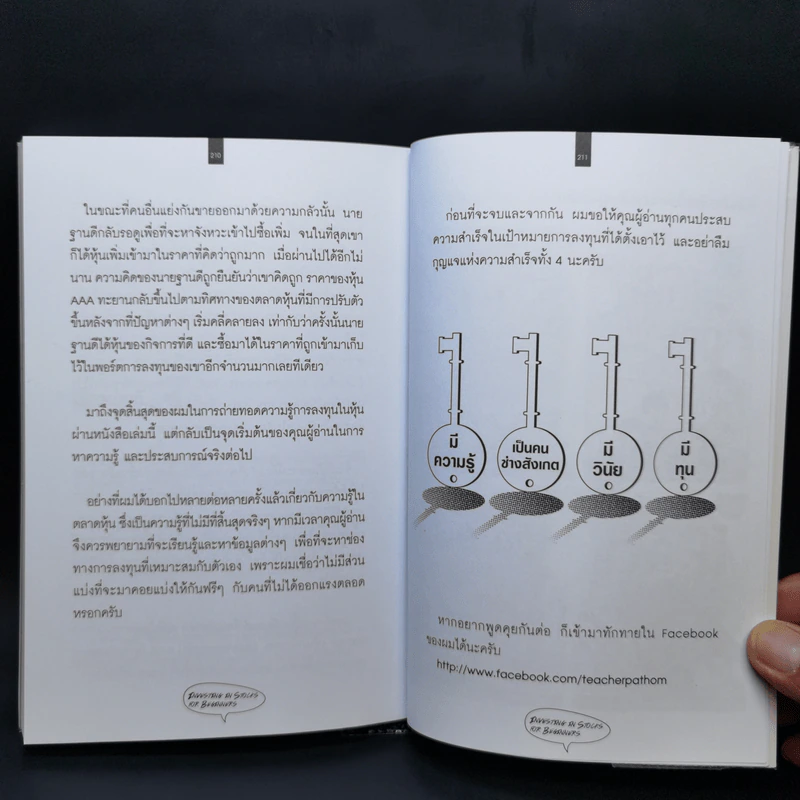 210
ในขณะที่คนอื่นแย่งกันขายออกมาด้วยความกลัวนั้น นาย
ฐานดีกลับรอดูเพื่อที่จะหาจังหวะเข้าไปซื้อเพิ่ม จนในที่สุดเขา
ก็ได้หุ้นเพิ่มเข้ามาในราคาที่คิดว่าถูกมาก เมื่อผ่านไปได้อีกไม่
นาน ความคิดของนายฐานดีถูกยืนยันว่าเขาคิดถูก ราคาของหุ้น
AAA ทะยานกลับขึ้นไปตามทิศทางของตลาดหุ้นที่มีการปรับตัว
ขึ้นหลังจากที่ปัญหาต่างๆ เริ่มคลี่คลายลง เท่ากับว่าครั้งนั้นนาย
ฐานดีได้หุ้นของกิจการที่ดี และซื้อมาได้ในราคาที่ถูกเข้ามาเก็บ
ไว้ในพอร์ตการลงทุนของเขาอีกจำนวนมากเลยทีเดียว
มาถึงจุดสิ้นสุดของผมในการถ่ายทอดความรู้การลงทุนในหุ้น
ผ่านหนังสือเล่มนี้ แต่กลับเป็นจุดเริ่มต้นของคุณผู้อ่านในการ
หาความรู้ และประสบการณ์จริงต่อไป
อย่างที่ผมได้บอกไปหลายต่อหลายครั้งแล้วเกี่ยวกับความรู้ใน
ตลาดหุ้น ซึ่งเป็นความรู้ที่ไม่มีที่สิ้นสุดจริงๆ หากมีเวลาคุณผู้อ่าน
จึงควรพยายามที่จะเรียนรู้และหาข้อมูลต่างๆ เพื่อที่จะหาช่อง
ทางการลงทุนที่เหมาะสมกับตัวเอง เพราะผมเชื่อว่าไม่มีส่วน
แบ่งที่จะมาคอยแบ่งให้กันฟรีๆ กับคนที่ไม่ได้ออกแรงตลอด
หรอกครับ
INVESTING IN STOCKS
FOR BEGINNERS
211
ก่อนที่จะจบและจากกัน ผมขอให้คุณผู้อ่านทุกคนประสบ
ความสำเร็จในเป้าหมายการลงทุนที่ได้ตั้งเอาไว้ และอย่าลืม
กุญแจแห่งความสำเร็จทั้ง 4 นะครับ
มี
ความรู้
เป็นคน
ช่างสังเกต
มี
วินัย
มี
ทุน
หากอยากพูดคุยกันต่อ ก็เข้ามาทักทายใน Facebook
ของผมได้นะครับ
http://www.facebook.com/teacherpathom
INVESTING IN STOCKS
FOR BEGINNERS